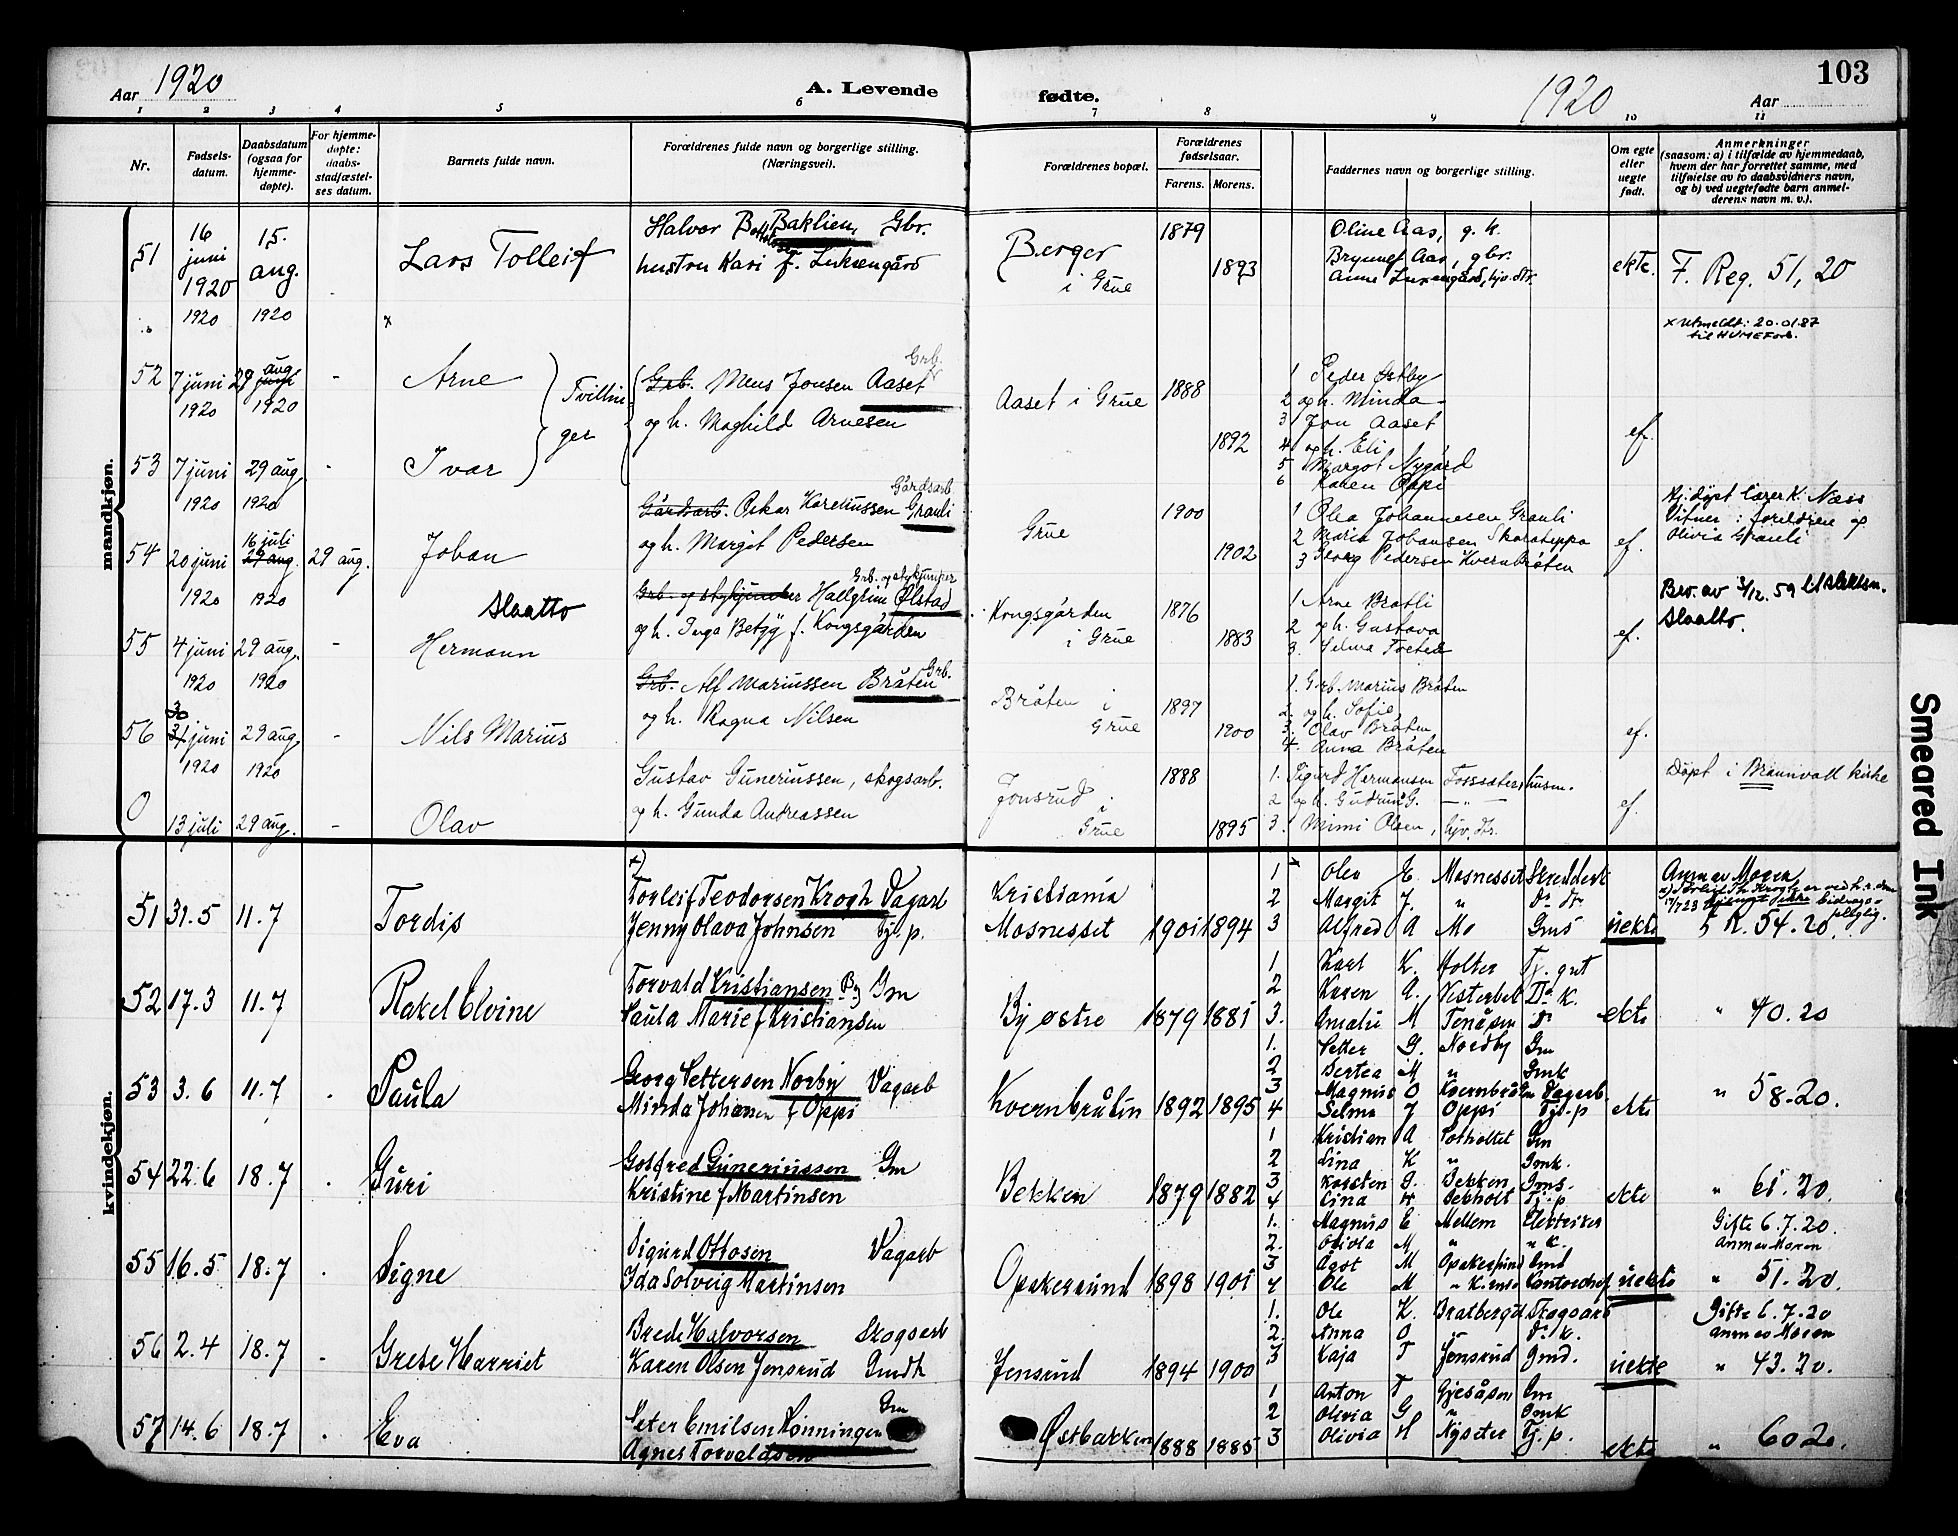 Aar 1920
A. Levende
fødte.
1920
Aar
103
1 2 3 4 5 6 7 8 9 10 11
Nr.
Fødsels-
datum.
Daabsdatum
(ogsaa for
hjemme-
døpte).
For hjemme-
døpte:
daabs-
stadfæstel-
ses datum.
Barnets fulde navn.
Forældrenes fulde navn og borgerlige stilling.
(Næringsvei).
Forældrenes bopæl.
Forældrenes
fødselsaar.
Farens. Morens.
Faddernes navn og borgerlige stilling.
Om egte
eller
uegte
født.
Anmerkninger
(saasom: a) i tilfælde av hjemmedaab,
hvem der har forrettet samme, med
tilføielse av to daabsvidners navn,
og b) ved uegtefødte barn anmel-
derens navn m. v.).
mandkjøn.
51
16
juni
1920
15.
aug.
1920
Lars Tolleif
Halvor Baklien, Gbr.
hustru Kari f.
Berger
i Grue
1879
1893
Oline Aas, g. k.
Brynjulf Aas, gbr.
ekte.
F. Reg. 51, 20
x Utmeldt: 20.01.87
til HUMEForb.
52
7 juni
1920
29 aug
1920
-
Arne
Tvillin-
ger
Grb. Mens Jonsen Aaset
og h. Maghild Arnesen
Aaset i Grue
1888
1892
1 Peder Østby
2 og h. Minda
3 Jon Aaset
4 og h. Eli
5 Margot Nygård
6 Karen Oppi
ef.
53
7 juni
1920
29 aug
1920
-
Ivar
54
20 juni
1920
16 juli
29 aug.
1920
29 aug.
Johan
Gårdsarb.
Gårdsarb. Oskar Kareliussen Grauli
og h. Margit Pedersen
Grue
1900
1902
1 Olea Johannesen Grauli
2 Maria Johansen Skarateppa
3 Georg Pedersen Kvernbråten
ef.
Hj.døpt lærer K. Næss
Vitner: foreldrene og
Olivia Grauli
55
4 juni
1920
29 aug.
1920
-
Slaatto
Hermann
Grb. og stykjunker
Hallgrim Ølstad
og h. Inga Betzy f. Kongsgården
Kongsgården
i Grue
1876
1883
1 Arne Bråtli
2 og h. Gustava
3. Selma
ef.
Bev. av 3/12.59 til slektsn.
Slaatto.
56
30
31 juni
1920
29 aug.
1920
-
Nils Marius
Grb. Alf Mariussen Bråten Grb.
og h. Ragna Nilsen
Bråten i
Grue
1897
1900
1. Grb. Marius Bråten
2. og h. Sofie
3. Olav Bråten
4. Anna Bråten
ef.
0
13 juli
29 aug.
-
Olav
Gustav Guneriussen, skogsarb.
og h. Gunda Andreassen
Jonsrud i
Grue
1888
1895
1. Sigurd Hermansen Fosssæter, husm.
2 og h. Gudrun G. — „ —
3. Mimi Olsen, hjv. dtr.
ef
Døpt i Brandvoll kirke
kvindekjøn.
51 31.5 11.7
Tordis
Torleif Teodorsen Krogh Vagarb
Jenny Olava Johnsen Tj.p.
Kristiania
Mosnesset
1901 1894
1 Olea E. Mosnesset
2 Margit J. „
3 Alfred A Mo Gms
uekte
Anm av Moren
R. 54.20.
52 17.3 11.7
Rakel Elvine
Torvald Kristiansen By Gm
Paula Marie f Kristiansen
By østre
1879 1881
1 Karl K. Holter Tj. gut
2 Karen A. Vesterbek
3. Amalie M Tenåsen
ekte
„ 40.20
53 3.6 11.7
Paula
Georg Pettersen Norby Vagarb
Minda Johansen f Oppi
Kvernbråtin
1892 1895
1. Petter G. Nordby Gm
2 Bertea M „ Gmk
3 Magnus O Kvernbråtin Vagarb
4 Selma J Oppi Tj.p
ekte
„ 58.20.
54 22.6 18.7
Guri
Gotfred Guneriussen Gm
Kristine f Martinsen
Bekken
1879 1882
1 Kristian A Potholtet Gm
2 Lina K „ Gmk.
3 Karsten G. Bekken Gms.
4 Lina Tj.p
ekte
„ 61.20.
55 16.5 18.7
Signe
Sigurd Ottosen Vagarb
Ida Solveig Martinsen
Opakersund
1898 1901
1. Magnus E Mellem Elektriker
2. Olivia M „ „ k.
3 Agot M Opakersund Gmd
4 Ole M
uekte
Gifte 6.7.20.
Anm av Moren
„ 51.20.
56 2.4 18.7
Grete Harriet
Brede Halvorsen Skogsarb
Karen Olsen Jensrud Gmdt
Jensrud
1894 1900
1. Ole K. Bratbergd Skogsarb
2. Anna O „ D. k.
3 Kaja T Jensrud Gmd.
uekte
Gifte 6.7.20
Anm av Moren
„ 43.20.
57 14.6 18.7
Eva
Peter Emilsen Rønningen Gm
Agnes Torvaldsen
Østbakken
1888 1885
1 Anton T Gjesåsen Gm
2 Olivia G „ Gmk
3 Olivia H Nyseter Tj.p.
ekte
„ 60 20.
Smeared Ink